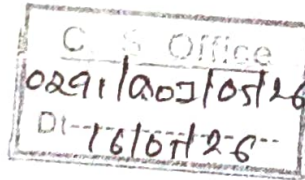 C. S Office
0291/AOJ/05/26
Dt 16/05/26